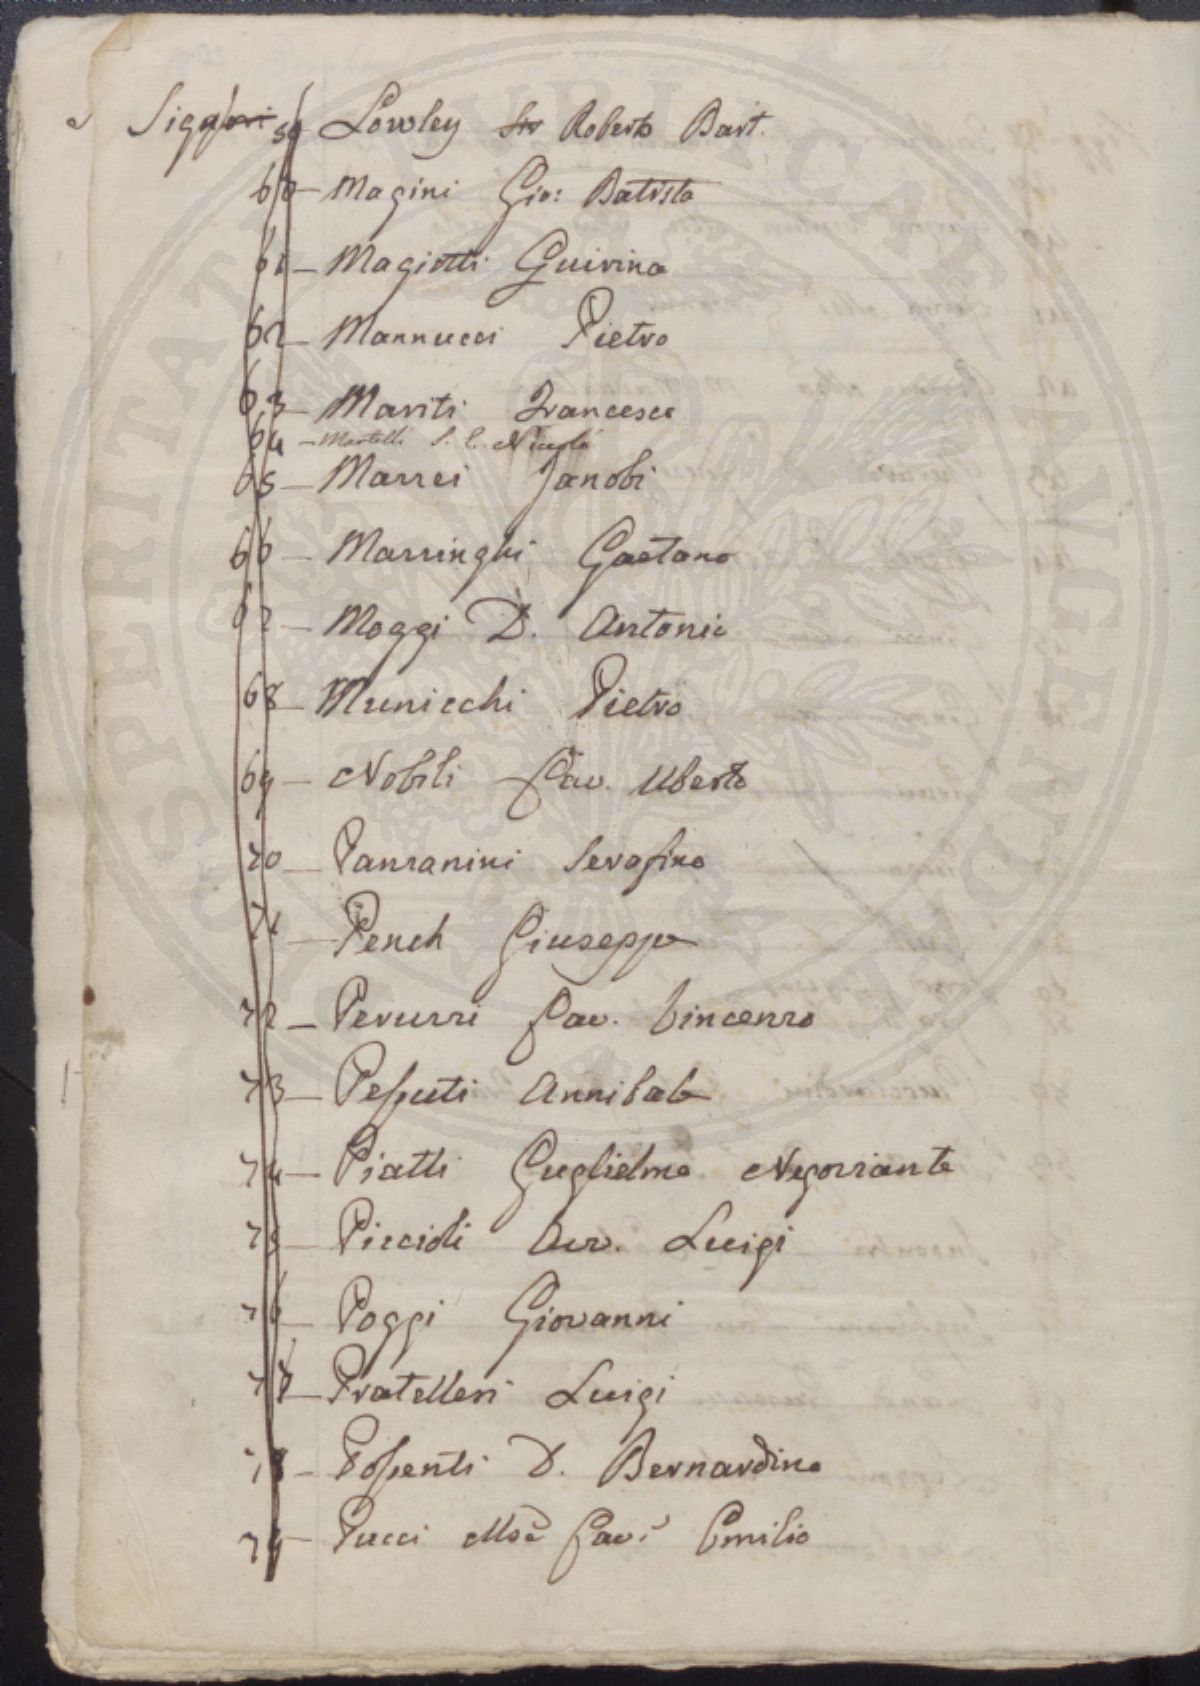 Sigg.ri 59 Lowley Sir Roberto Bart.
60 - Magini Gio: Batista
61 - Magiotti Guirina
62 - Mannucci Pietro
63 - Mariti Francesco
64 - Martelli S. C. Nicolò
65 - Marzei Zanobi
66 - Marzinghi Gaetano
67 - Moggi D. Antonio
68 - Municchi Pietro
69 - Nobili Cav. Uberto
70 - Panzanini Serafino
71 - Pench Giuseppe
72 - Peruzzi Cav. Vincenzo
73 - Pessuti Annibale
74 - Piatti Guglielmo Negoziante
75 - Piccioli Avv. Luigi
76 - Poggi Giovanni
77 - Pratellesi Luigi
78 - Possenti D. Bernardino
79 - Pucci Mse Cav. Emilio
SPERITATI PUBLICAE AUGENDAE